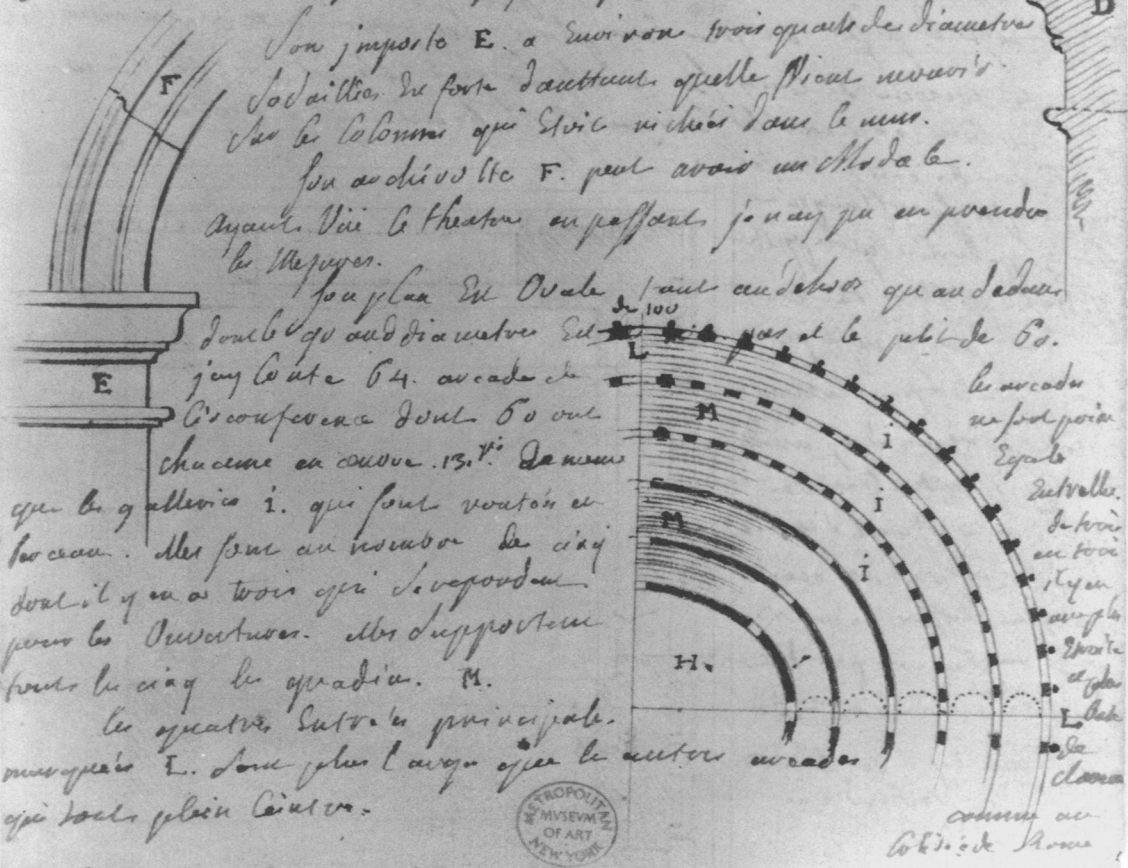 D
F
Son imposte E. a Environ trois quarts de diametre
de saillie. En sorte d'auttant quelle vient mourir
Sur les Colonnes qui Etoit nichées dans le mur.
Son archivolte F. peut avoir un Module.
ayant Vüe le theatre en passant je n'ay pu en prendre
les Mesures.
Son plan Est Ovale tant au dehors qu'au dedans
dont le grand diametre Est de 100 pas et le petit de 60.
L
E
j'ay Conté 64. arcades de
Circonference dont 60 ont
chacune en œuvre .13. De meme
que les galleries i. qui sont voutées en
berceau. elles sont au nombre de cinq
dont il y en a trois qui se repondent
pour les Ouvertures. elles supportent
toutes les cinq les gradins. M.
les quatres Entrées principale.
marquées L. sont plus large que les autres arcades
qui sont plein Ceintre.
M
i
i
M
i
H.
L
les arcades
ne sont point
Egale
Entr'elles.
de trois
en trois
il y en
a une plus
Etroite
et plus
de
comme au
Colisée de Rome
METROPOLITAN
MVSEVM
OF ART
NEW YORK